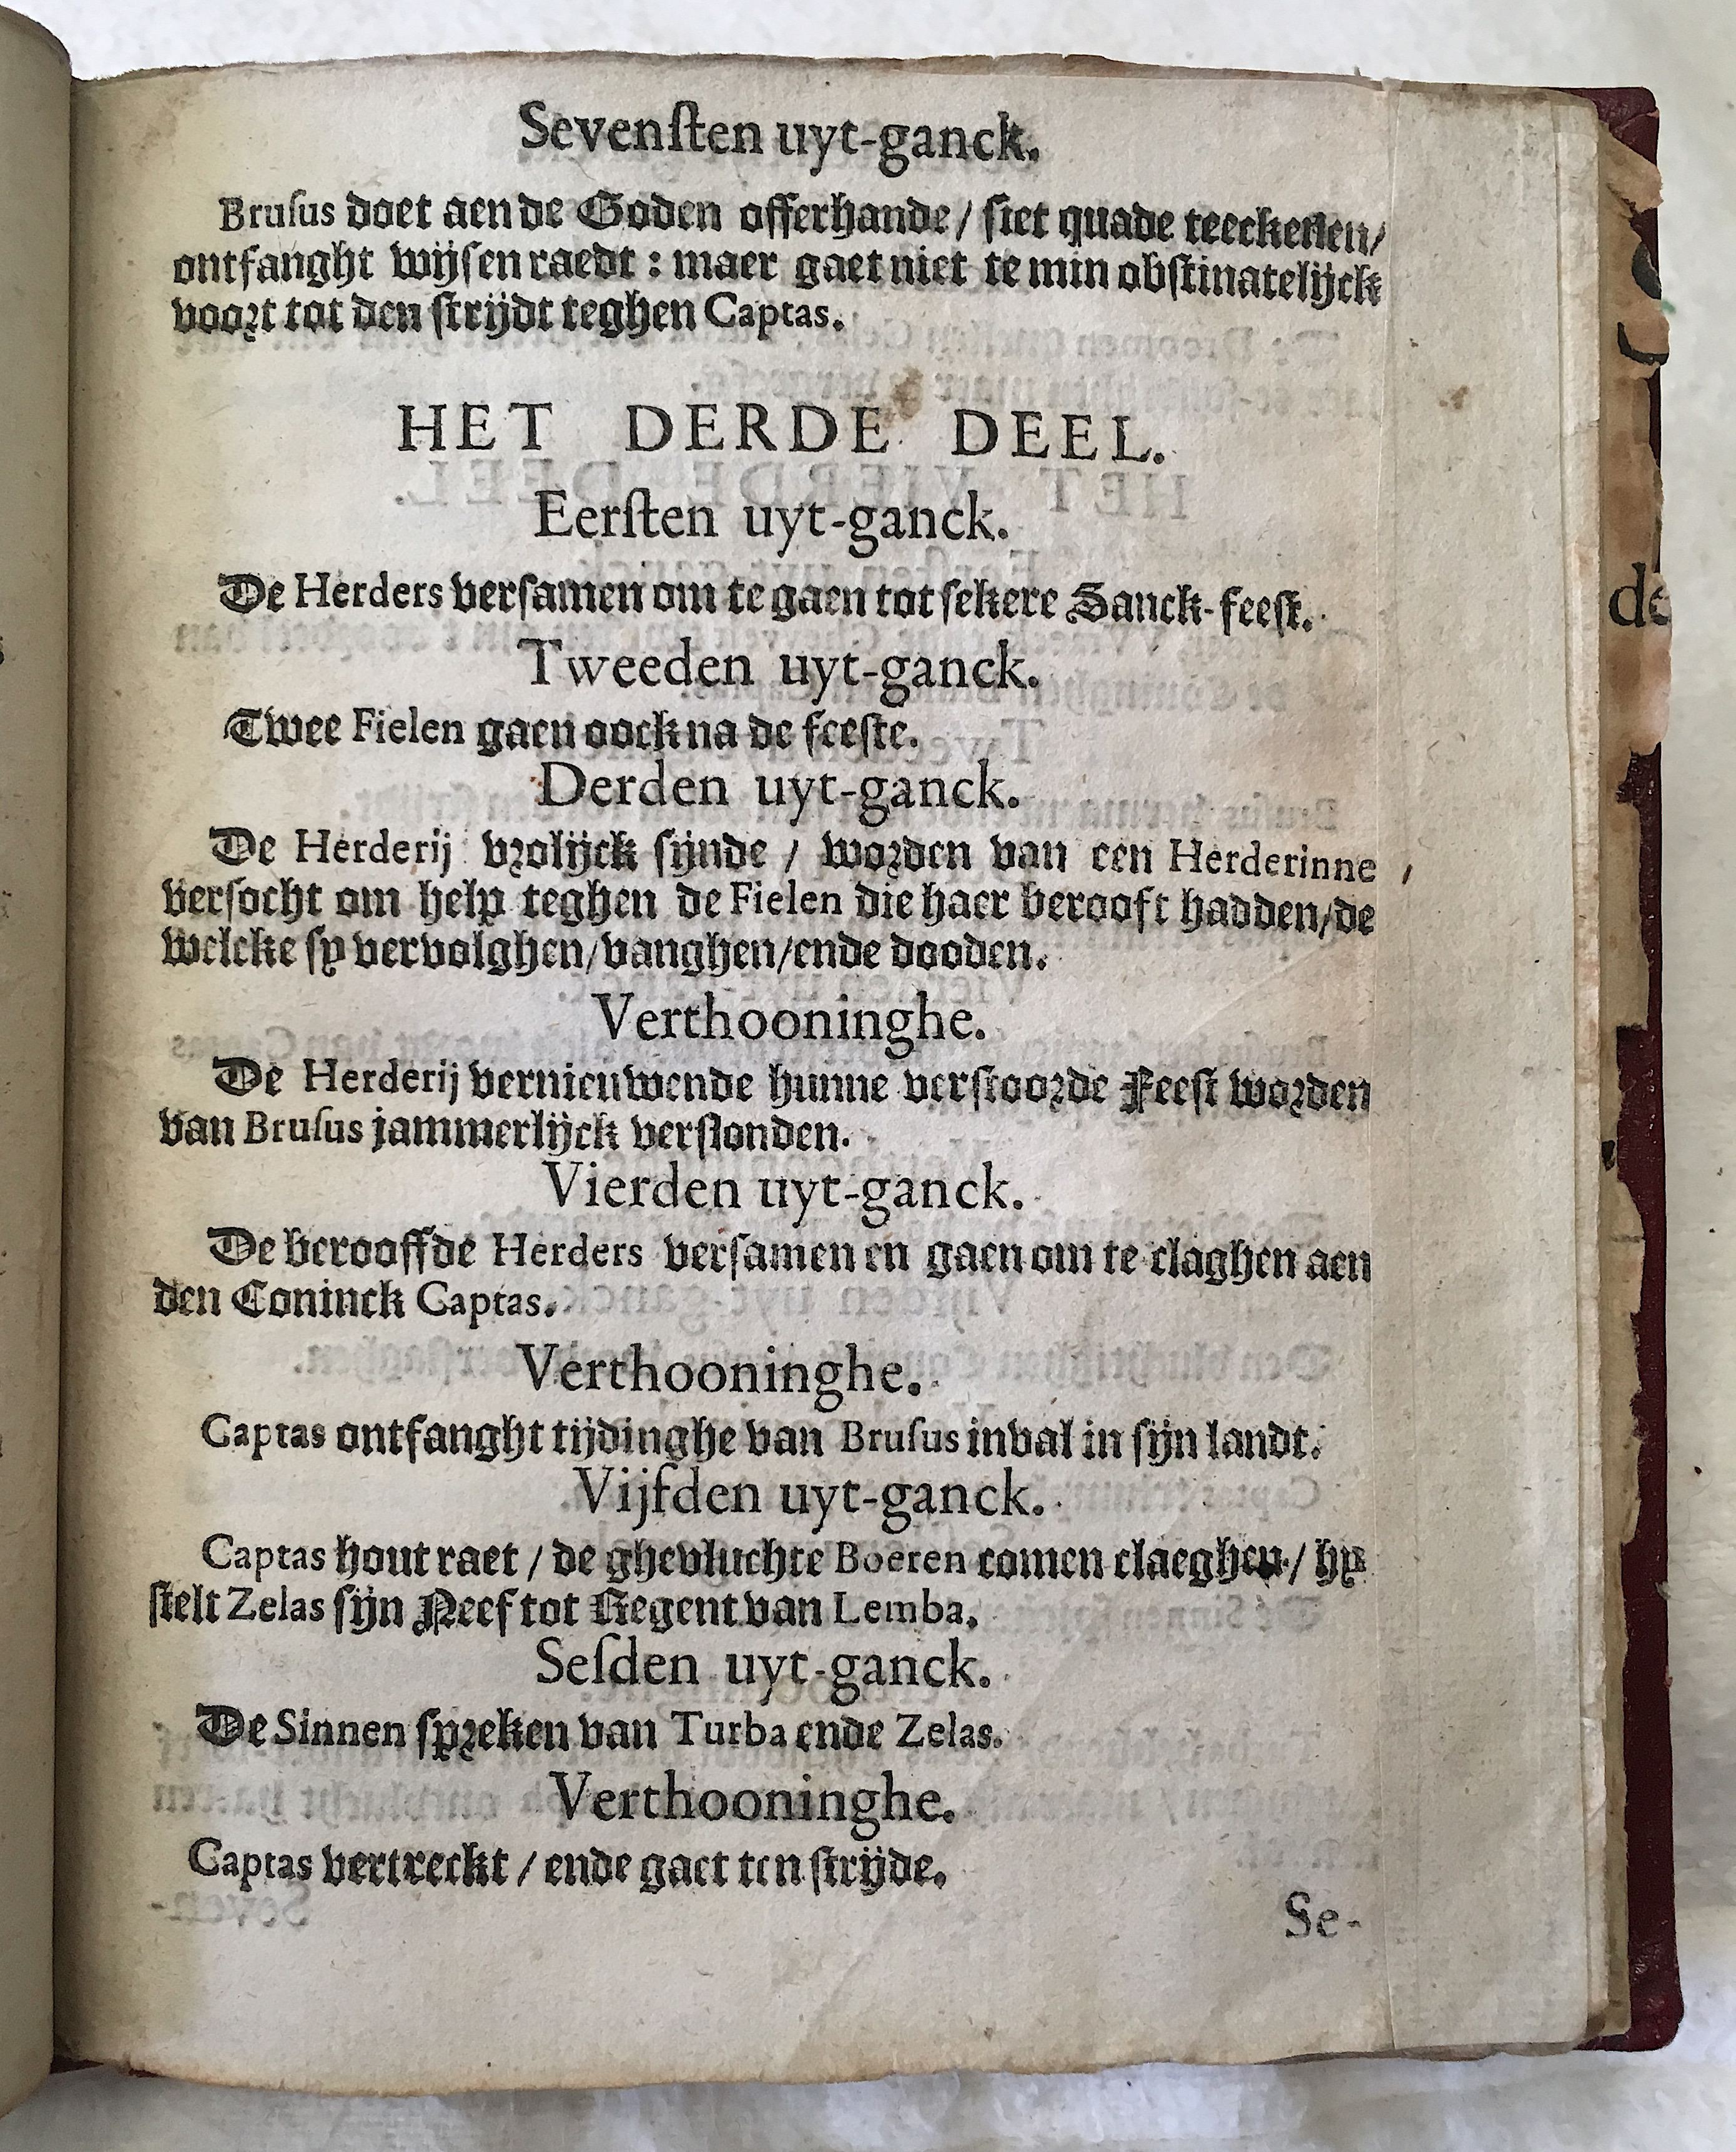 Sevenſten uyt-ganck.
Bruſus doet aen de Goden offerhande / ſiet quade teeckenen /
ontfanght wijſen raedt : maer gaet niet te min obſtinatelijck
voort tot den ſtrijdt teghen Captas.
HET DERDE DEEL.
Eerſten uyt-ganck.
De Herders verſamen om te gaen tot ſekere Sanck-feeſt.
Tweeden uyt-ganck.
Twee Fielen gaen oock na de feeſte.
Derden uyt-ganck.
De Herderij vrolijck ſijnde / worden van een Herderinne
verſocht om help teghen de Fielen die haer berooft hadden / de
welcke ſy vervolghen / vanghen / ende dooden.
Verthooninghe.
De Herderij vernieuwende hunne verſtoorde Feeſt worden
van Bruſus jammerlijck verſlonden.
Vierden uyt-ganck.
De berooffde Herders verſamen en gaen om te claghen aen
den Coninck Captas.
Verthooninghe.
Captas ontfanght tijdinghe van Bruſus inval in ſijn landt.
Vijfden uyt-ganck.
Captas hout raet / de ghevluchte Boeren comen claeghen / hy
ſtelt Zelas ſijn Neef tot Regent van Lemba.
Seſden uyt-ganck.
De Sinnen ſpreken van Turba ende Zelas.
Verthooninghe.
Captas vertreckt / ende gaet ten ſtrijde.
Se-
de